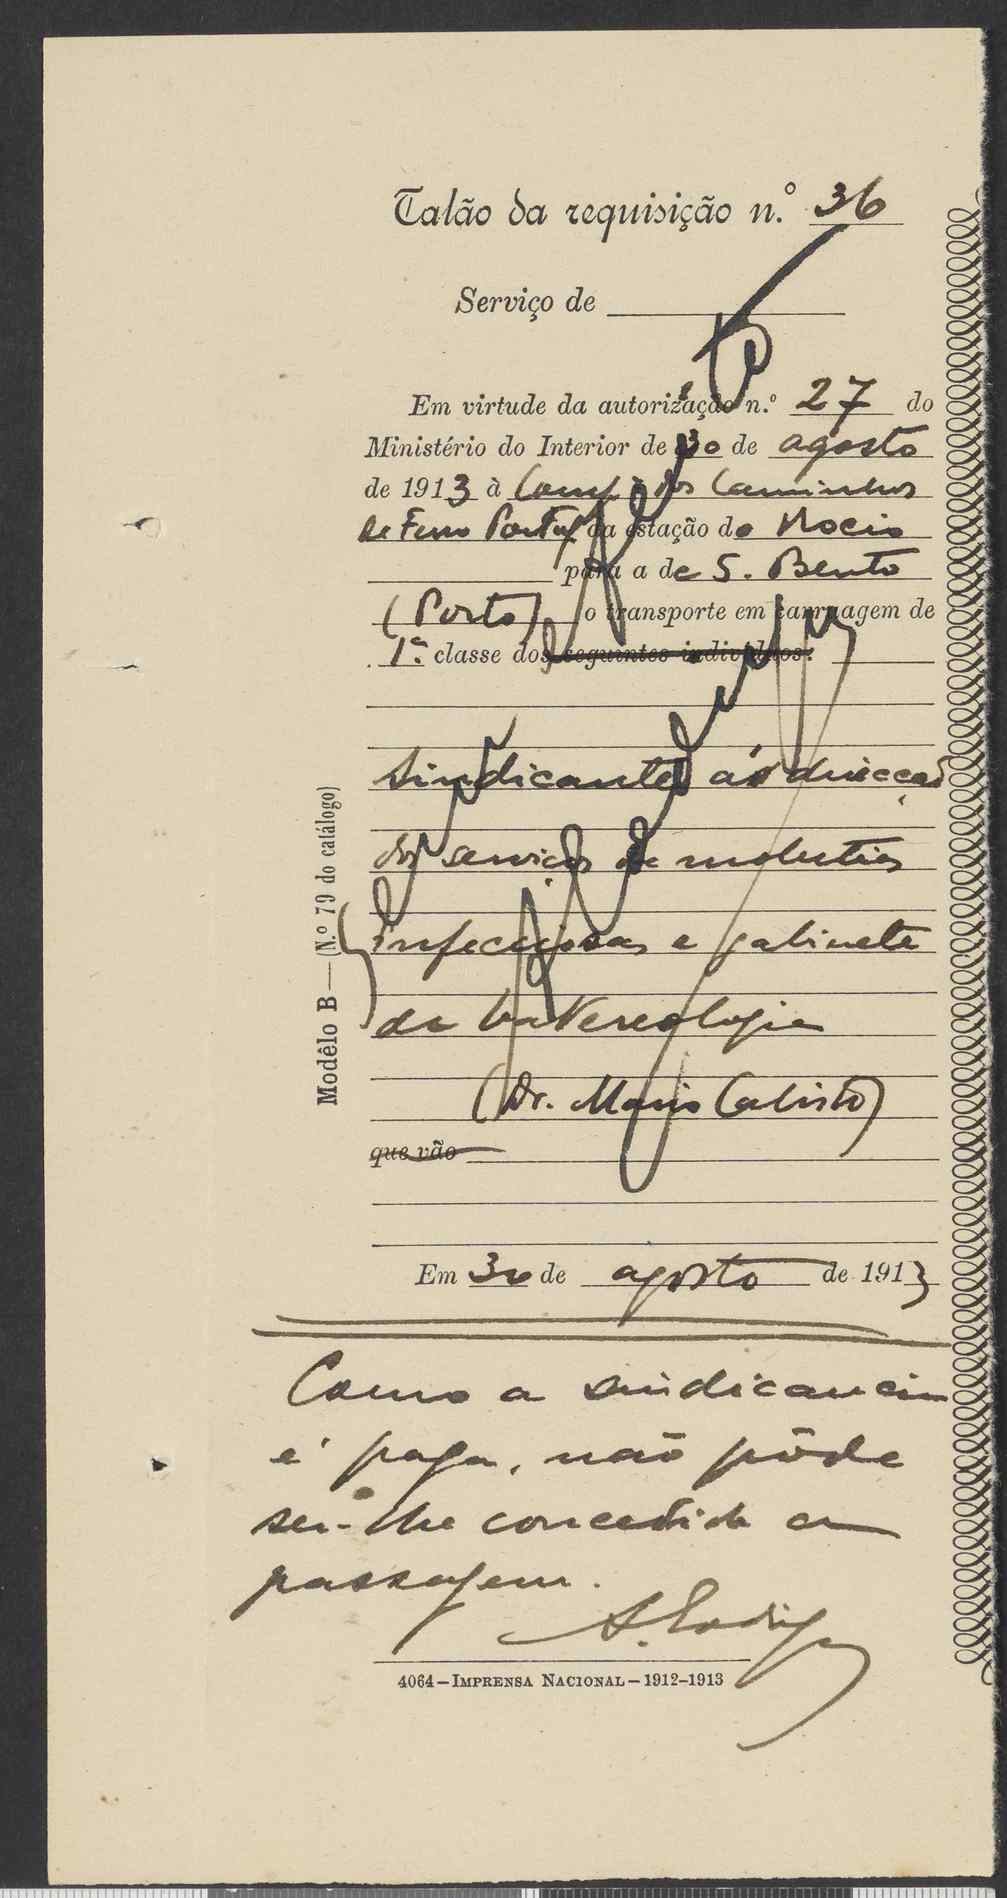 Talão da requisição n.º 36
Serviço de
Em virtude da autorização n.º 27 do
Ministério do Interior de 30 de agosto
de 1913 à Comp.ª dos Caminhos
de Ferro Portug. da estação do Rocio
para a de S. Bento
(Porto) o transporte em carruagem de
1.ª classe dos seguintes indivíduos:
sindicante ás direcção
dos serviços de molestias
infecciosas e gabinete
de bactereologia
(Dr. Mario Calisto)
que vão
Em 30 de agosto de 1913
Como a sindicancia
é paga, não pôde
ser-lhe concedida a
passagem.
4064—Imprensa Nacional—1912-1913
Modêlo B—(N.º 79 do catálogo)